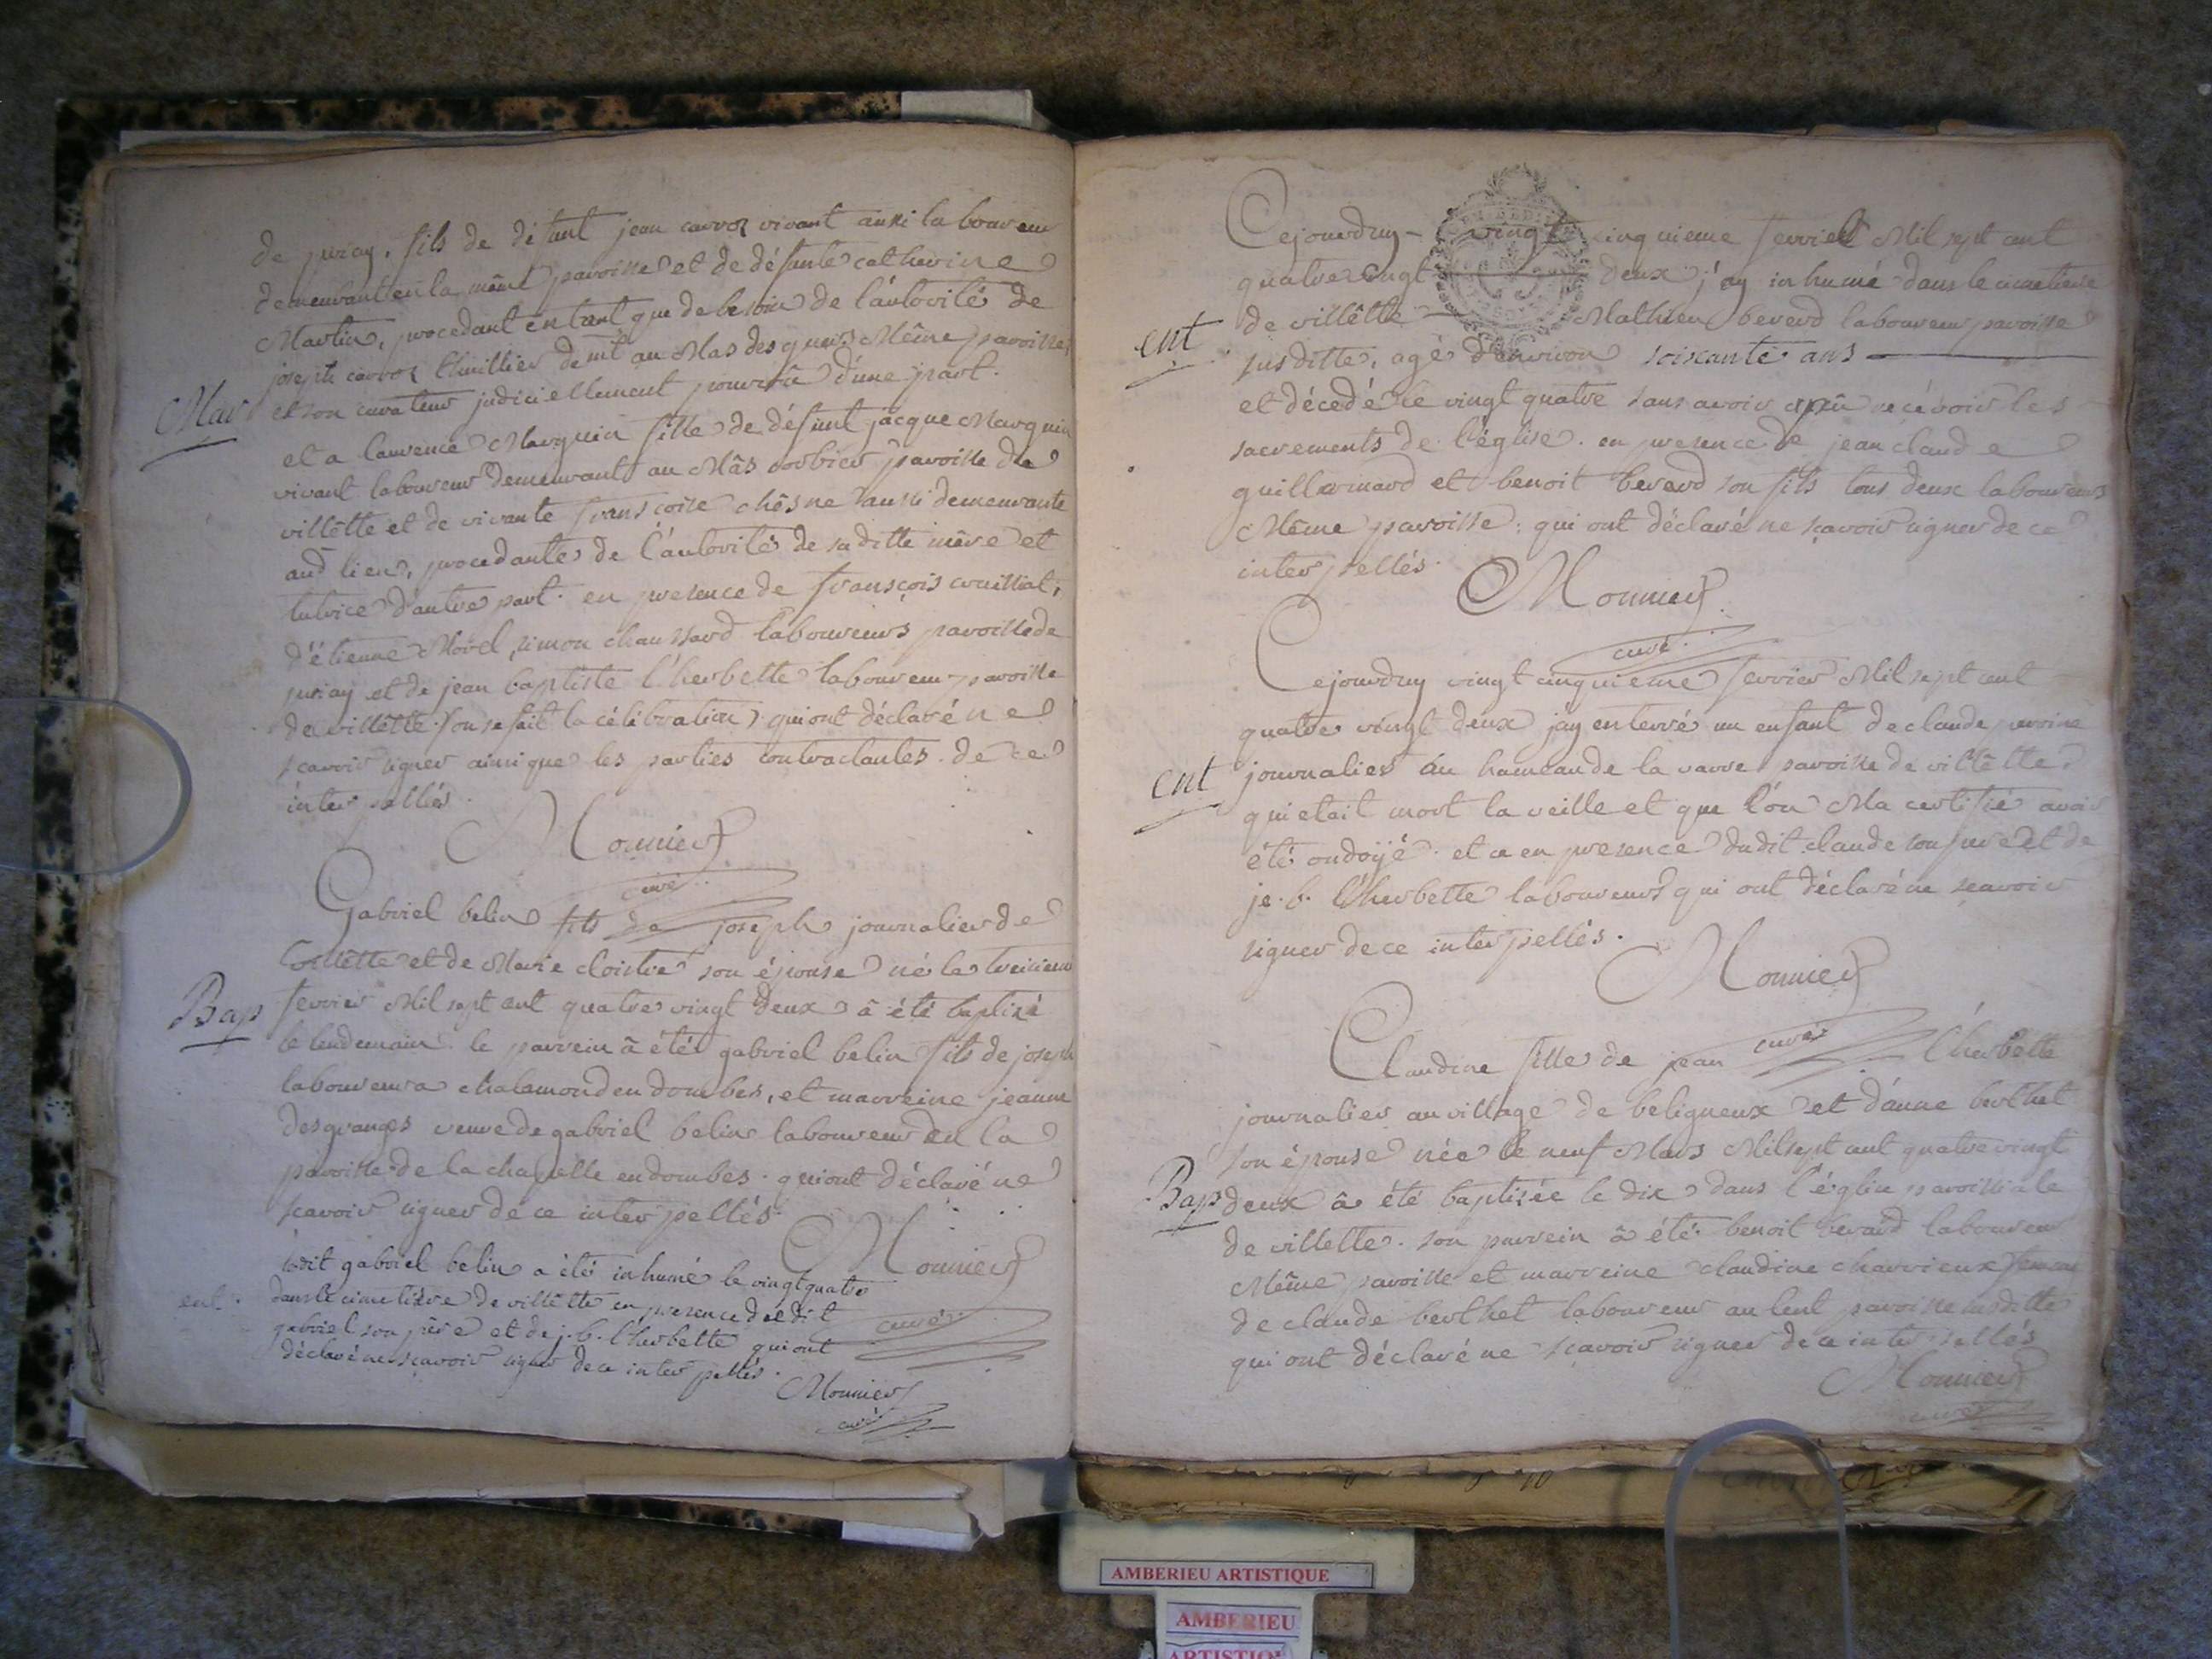 de priay, fils de défunt jean carroz vivant aussi laboureur
demeurant en la même paroisse et de défunte catherine
Martin, procedant en tant que de besoin de l'áutorité de
joseph carroz thuillier demt au Mas des quers Même paroisse
Mar
et son curateur judiciellement pourvû d'une part.
et a laurence Marguin fille de défunt jacque Marguin
vivant laboureur demeurant au Mâs corbier paroisse de
villêtte et de vivante françoise chêsne aussi demeurante
aud lieu, procedante de l'áutorité de sa ditte mêre et
tutrice d'autre part. en presence de françois cruissiat,
d'étienne Morel, simon chaussard laboureurs paroisse de
priay et de jean baptiste l'herbette laboureur paroisse
de villêtte (ou se fait la célébration) qui ont déclaré ne
scavoir signer ainsi que les parties contractantes. de ce
interpellés.
Monnier
curé
Gabriel belin fils de joseph journalier de
et de Marie cloistre son épouse né le treizieme
Bap
fevrier Mil sept cent quatre vingt deux â été baptizé
le lendemain. le parrein â été gabriel belin fils de joseph
laboureur a chalamond en dombes, et marreine jeanne
desgranges veuve de gabriel belin laboureur en la
paroisse de la chapelle en dombes. qui ont déclaré ne
scavoir signer de ce interpellés.
Monnier
curé
ent.
ledit gabriel belin a été inhumé le vingt quatre
dans le cimetière de villêtte en presence dudit
gabriel son père et de j. b. l'herbette qui ont
déclaré ne scavoir signer de ce interpellés.
Monnier
curé
Cejourduy vingt cinquieme fevrier Mil sept cent
quatre vingt deux j'ay inhumé dans le cimetiere
de villêtte Mathieu beverd laboureur paroisse
ent
susditte, agé d'environ soixante ans
et décedé le vingt quatre sans avoir pû recévoir les
sacrements de l'église. en presence de jean claude
guillerminard et benoit beverd son fils tous deux laboureurs
Même paroisse: qui ont déclaré ne sçavoir signer de ce
interpellés.
Monnier
curé
Cejourduy vingt cinquieme fevrier Mil sept cent
quatre vingt deux jay enterré un enfant de claude
ent
journalier áu hameau de la varre paroisse de villêtte
qui etait mort la veille et que l'ón Ma certifié avoir
été ondoÿé. et ce en presence dudit claude son pere et de
je. b. l'herbette laboureurs qui ont déclaré ne scavoir
signer de ce interpellés.
Monnier
curé
Claudine fille de jean l'herbette
journalier au village de beligneux et d'ánne berthet
son épouse née le neuf Mars Mil sept cent quatre vingt
Bap
deux â été baptisée le dix dans l'église paroissiale
de villette. son parrein â été benoit berard laboureur
Même paroisse et marreine claudine charrieux femme
de claude berthet laboureur au lent paroisse susditte
qui ont déclaré ne sçavoir signer de ce interpellés
Monnier
curé
AMBERIEU ARTISTIQUE
AMBERIEU
ARTISTIQUE